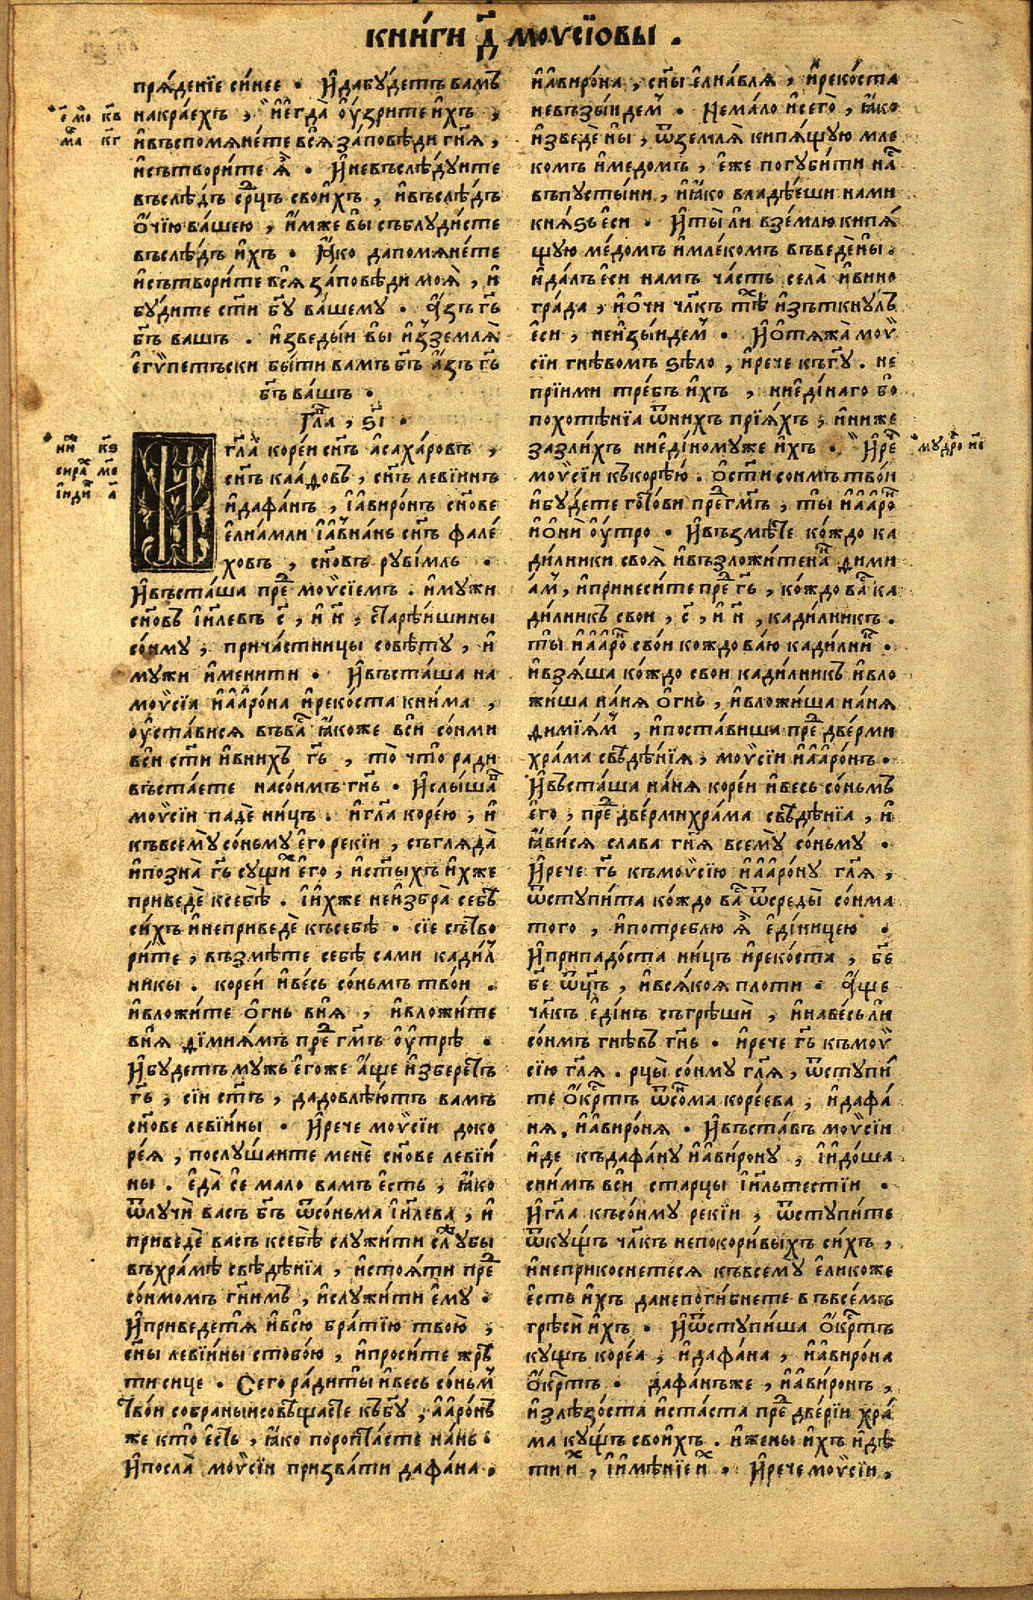 кни́ги д҃ моѵсїовы .
пря́денїе си́нее . И҆дабу́детъ вамъ
накра́ехъ , и҆е҆гда̀ о҆у́зрите и҆́хъ ,
и҆въспомяне́те вся̀ за́повѣди гн҃я ,
и҆сътвори́те я҆̀ . И҆невъслѣ́дуите
въслѣ́дъ ср҃цъ свои́хъ , и҆въслѣ́дъ
о҆́чїю ва́шею , и҆́мже вы̀ съблуди́сте
въслѣ́дъ и҆́хъ . Ꙗ҆́ко дапомяне́те
и҆сътвори́те вся̀ за́повѣди моя̀ , и҆
бу́дите ст҃и бг҃у ва́шему . А҆́зъ гь҃
бг҃ъ вашъ . и҆зведы́и вы̀ и҆зземля̀
е҆гѵ́петъски бы́ти вамъ бг҃ъ а҆́зъ гь҃
бг҃ъ ва́шъ .
Гла҃ , ѕ҃і .
И҆
гл҃а коре́и сн҃ъ а҆саха́ровъ ,
сн҃ъ каа́довъ , сн҃ъ леви́инъ
и҆дафа́нъ , і҆а҆виро́нъ сн҃ове
е҆лиа́мли і҆а҆ѵна́нь сн҃ъ фале́
ховъ , сн҃овъ руви́мль .
И҆въста́ша пре҃ моѵсїемъ . и҆мужи
сн҃овъ і҆и҃левъ с҃ , и҆ н҃ , старѣ́ишины
со́нму , прича́стницы совѣ́ту , и҆
му́жи и҆мени́ти . И҆въста́ша на
моѵсїа и҆а҆аро́на и҆реко́ста кни́ма ,
о҆уста́вися въва҃ ꙗ҆́коже вси̑ со́нми
вси̑ ст҃и и҆вни́хъ гь҃ , то̀ что̀ ра́ди
въстае́те насо́нмъ гн҃ь . И҆слы́ша
моѵсїи падѐ ни́цъ . и҆гл҃а коре́ю , и҆
къвсему̀ со́ньму е҆го̀ рекїи , съгляда̀
и҆позна̀ гь҃ су́щи е҆го̀ , и҆сты́хъ и҆́хже
приведѐ ксебѣ̀ . І҆и҆́хже неи҆збра̀ себѣ̀
си́хъ и҆неприведѐ къ себѣ̀ . сїе сътво
ри́те , възмѣ́те себѣ̀ са́ми кади́л
ники . коре́и и҆ве́сь со́ньмъ тво́и .
и҆вложи́те о҆гнь вня̀ , и҆вложи́те
вня̀ дїмия́мъ пре҃ гм҃ъ о҆у́трѣ .
И҆бу́детъ мужъ е҆го́же а҆́ще и҆збере́тъ
гь҃ , сїи ст҃ъ , дадовлѣ́ютъ вамъ
сн҃ове леви́ины . И҆рече моѵсїи доко
ре́я , послу́шаите менѐ сн҃ове леви́и
ны . е҆да̀ се ма́ло вамъ е҆́сть , ꙗ҆́ко
ѿлучѝ васъ бг҃ъ ѿсо́ньма і҆и҃лева , и҆
приведѐ васъ ксебѣ̀ служи́ти слу́жбы
въхра́мѣ свѣдѣ́нїа , и҆стоя́ти пре҃
со́нмомъ гн҃имъ , и҆служи́ти е҆му̀ .
И҆приведе́тя и҆всю̀ бра́тїю твою̀ ,
сн҃ы леви́ины стобо́ю , и҆проси́те жръ
ти сице . Сего ра́ди ты̀ и҆весь со́ньм
тво́и собраны́и совѣщаете къ бг҃у , а҆аро́нъ
же кто̀ е҆́сть , ꙗ҆́ко поропта́сте на́нь .
И҆посла̀ моѵсїи призва́ти дафа́на .
и҆а҆виро́на , сн҃ы е҆лиа́вля , и҆реко́ста
невъзы́идем . Нема́ло и҆сего̀ , ꙗ҆́ко
и҆зведѐ ны , ѿземля̀ кипя́щую мле
комъ и҆медомъ , е҆́же погуби́ти на
въпусты́ни , и҆ꙗ҆́ко владѣ́еши нами
кня́sь е҆си . И҆ты̀ ли взе́млю кипя́
щую ме́домъ и҆мле́комъ въведѐ ны .
и҆да́лъ е҆си намъ ча́сть села̀ и҆вино
гра́да , и҆о҆чи чл҃къ тѣ́х и҆зъткну́лъ
е҆си , неи҆зы́идем . И҆о҆тяжа̀ моѵ
сїи гнѣ́вомъ ѕѣло̀ , и҆рече къ гу҃ . не
прїими́ тре́бъ и҆́хъ , ние҆ди́наго бо
похотѣ́нїа ѿни́хъ прїя́хъ ; и҆ниже
зазли́хъ ние҆ди́ному же и҆́хъ . И҆рече
моѵсїи къ коре́ю . о҆стѝ сонмъ твои́
и҆бу́дете гото́ви пре҃ гм҃ъ , ты̀ и҆а҆аро́
и҆о҆нѝ о҆у́тро . И҆възмѣ́те ко́ждо ка
ди́лники своя̀ и҆възложи́тена дими
а́м , и҆принесите пре҃ гь҃ , ко́ждо ва ка
ди́лникъ свои , с҃ , и҆ н҃ , кадилникъ .
ты̀ и҆а҆аро́ свои кождо ва́ю кадилни .
и҆взя́ша ко́ждо свои кадилникъ и҆вло
жи́ша на́ня о҆гнь , и҆вложи́ша на́ня
димїя́м , и҆поста́виша пре҃ две́рми
хра́ма свѣдѣ́нїя , моѵсїи и҆а҆аро́нъ .
И҆въста́ша на́ня коре́и и҆весь со́ньмъ
е҆го , пре҃ две́рми хра́ма свѣдѣ́нїа , и҆
ꙗ҆ви́ся сла́ва гн҃я всему̀ со́ньму .
И҆рече гь҃ къ моѵсїю и҆а҆аро́ну гл҃я ,
ѿступи́та ко́ждо ва ѿсреды̀ со́нма
того , и҆потреблю̀ я҆̀ е҆ди́ницею .
И҆припадо́ста ни́цъ и҆реко́ста , бг҃е
бг҃е ѿц҃ъ , и҆вся́коя плоти . А҆́ще
чл҃къ е҆ди́нъ съгрѣшѝ , и҆наве́сь ли
со́нмъ гнѣ́въ гн҃ь . и҆рече гь҃ къ моѵ
сїю гл҃я . рцы̀ со́нму гл҃я , ѿступи́
те о҆́крстъ ѿсо́нма коре́ева , и҆дафа́
ня , и҆а҆виро́ня . И҆въста́въ моѵсїи
и҆де къ дафа́ну и҆а҆виро́ну , і҆и҆до́ша
сни́мъ вси̑ старцы і҆и҃льтестїи .
И҆гл҃а къ со́нму рекїи , ѿступи́те
ѿкущъ чл҃къ непокори́выхъ си́хъ ,
и҆неприкосне́теся къ всему̀ е҆ли́коже
е҆сть и҆́хъ данепоги́бнете въ всѣ́мъ
грѣсѣ̀ и҆́хъ . И҆ѿступи́ша о҆́крстъ
кущъ коре́а , и҆дафа́на , и҆а҆виро́на
о҆́крстъ . дафа́нъ же , и҆а҆виронъ ,
и҆злѣзо́ста и҆ста́ста пре҃ две́рїи хра́
ма кущъ свои́хъ . и҆жены и҆́хъ и҆дѣ́
ти и҆х , і҆и҆мѣ́нїе и҆х . И҆рече моѵсїи ,